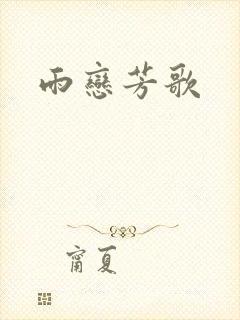 雨戀芳歌
甯夏